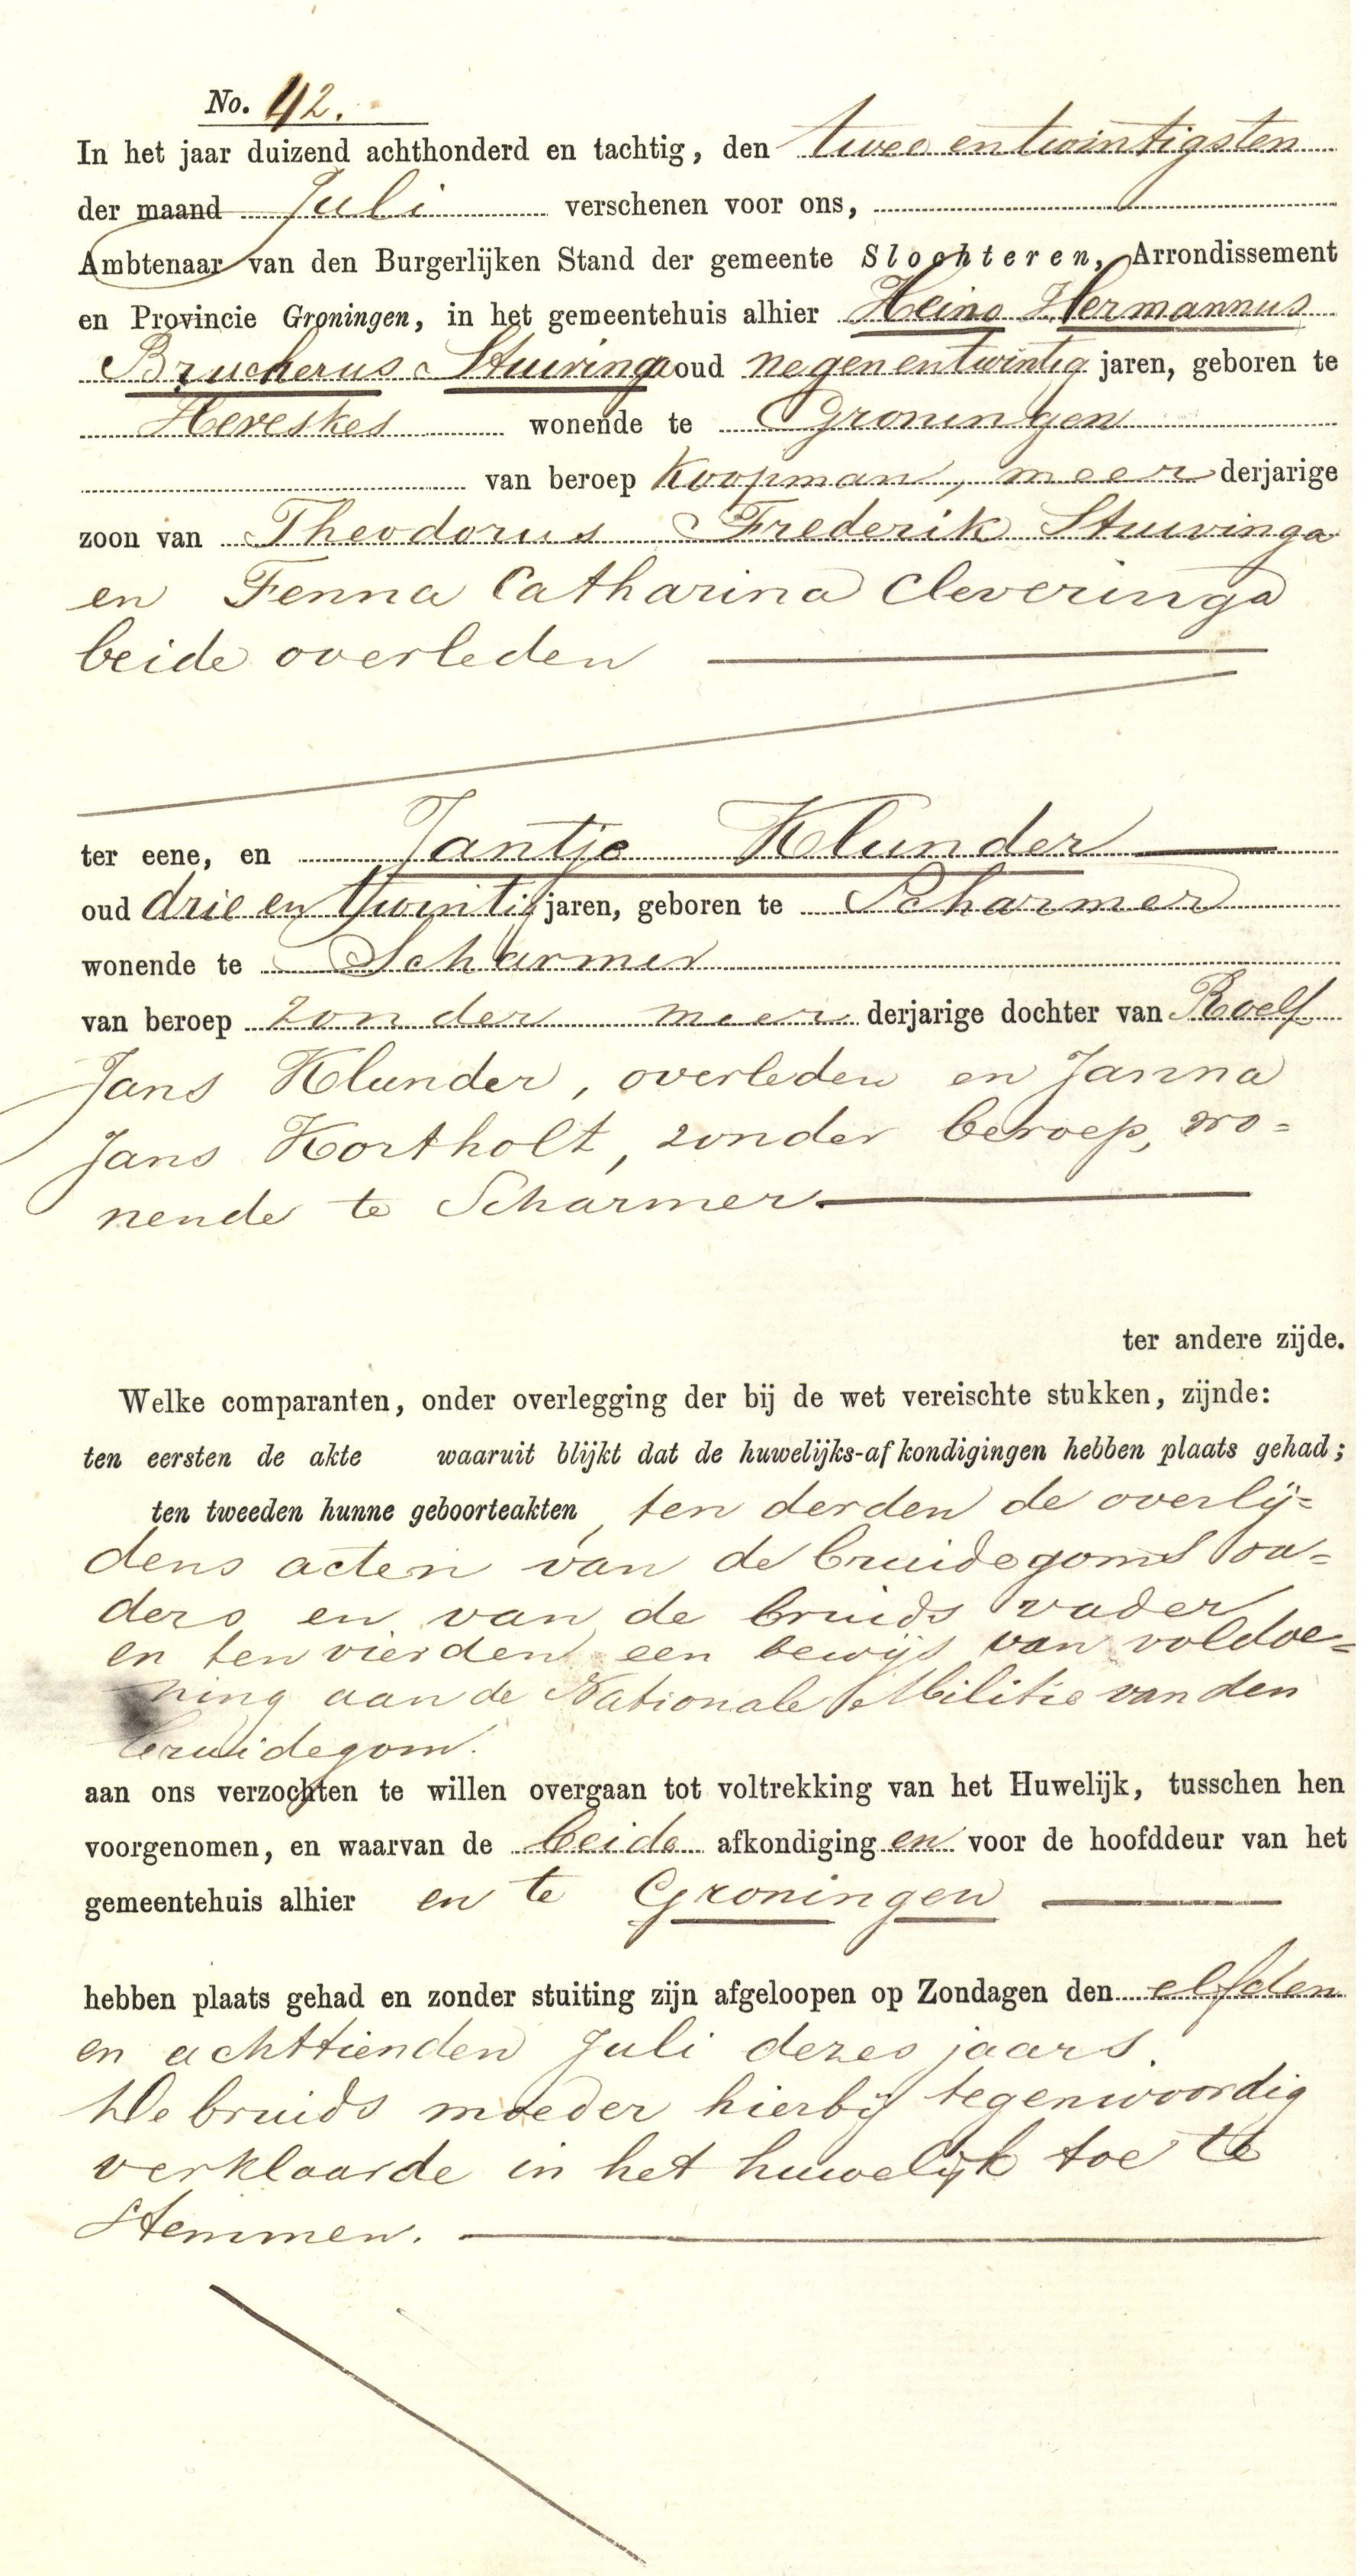 No. 42.
In het jaar duizend achthonderd en tachtig, den twee en twintigsten
der maand Juli verschenen voor ons,
Ambtenaar van den Burgerlijken Stand der gemeente Slochteren, Arrondissement
en Provincie Groningen, in het gemeentehuis alhier Heino Hermannus
Brucherus Stuivinga oud negen en twintig jaren, geboren te
Hereskes wonende te Groningen
van beroep Koopman, meer derjarige
zoon van Theodorus Frederik Stuivinga
en Fenna Catharina Cleveringa
beide overleden
ter eene, en Jantje Klunder
oud drie en twintig jaren, geboren te Scharmer
wonende te Scharmer
van beroep zonder meer derjarige dochter van Roelf
Jans Klunder, overleden en Janna
Jans Kortholt, zonder beroep, wo=
nende te Scharmer.
ter andere zijde.
Welke comparanten, onder overlegging der bij de wet vereischte stukken, zijnde:
ten eersten de akte waaruit blijkt dat de huwelijks-afkondigingen hebben plaats gehad;
ten tweeden hunne geboorteakten, ten derden de overlij=
dens acten van de bruidegoms ou=
ders en van de bruids vader
en ten vierden een bewijs van voldoe=
ning aan de Nationale Militie van den
bruidegom.
aan ons verzochten te willen overgaan tot voltrekking van het Huwelijk, tusschen hen
voorgenomen, en waarvan de beide afkondiging en voor de hoofddeur van het
gemeentehuis alhier en te Groningen
hebben plaats gehad en zonder stuiting zijn afgeloopen op Zondagen den elfden
en achttienden Juli dezes jaars.
De bruids moeder hierbij tegenwoordig
verklaarde in het huwelijk toe te
Stemmen.